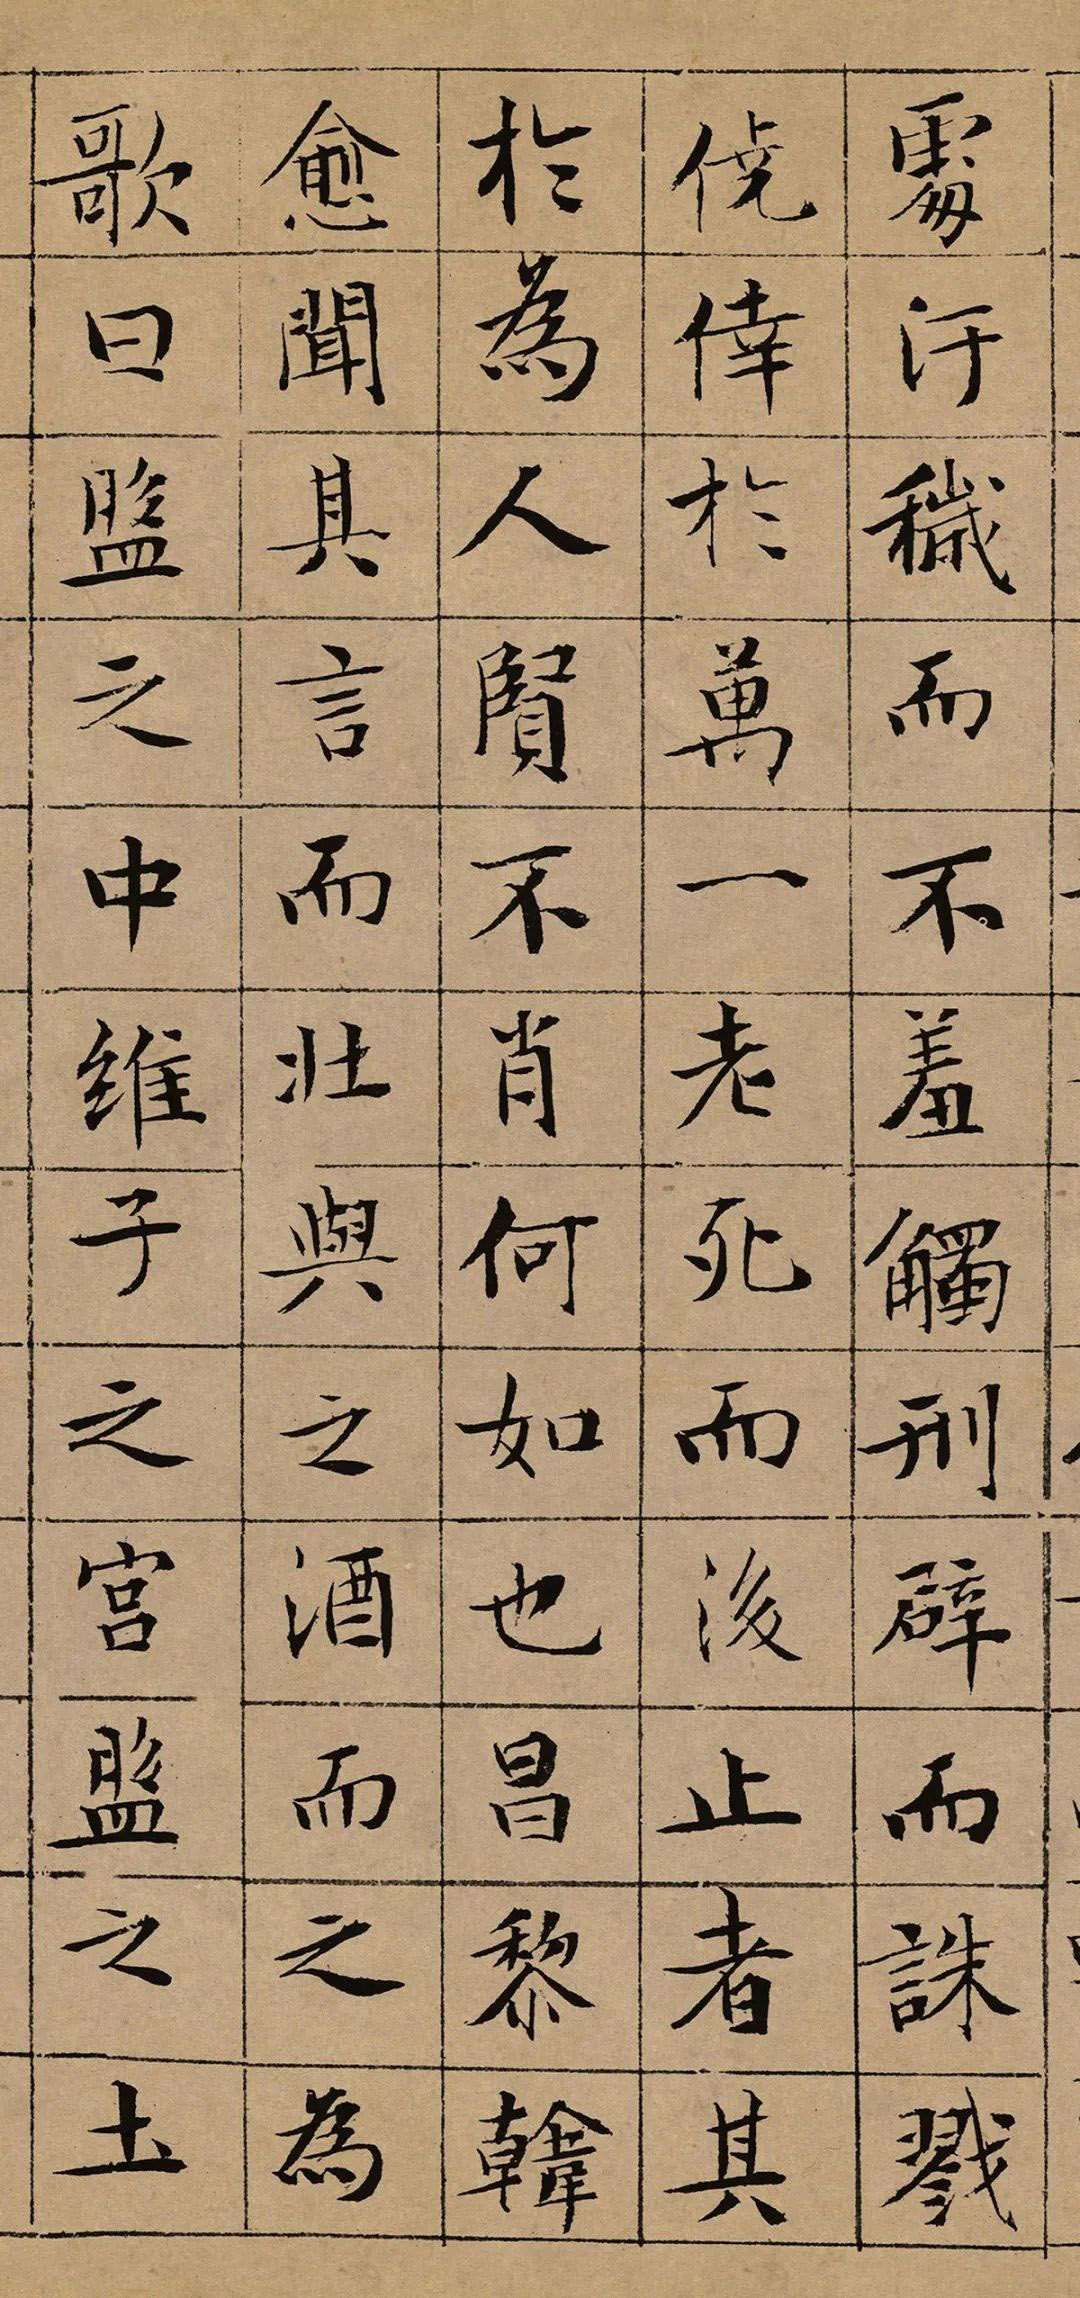 處汙穢而不羞觸刑辟而誅戮
僥倖於萬一老死而後止者其
於為人賢不肖何如也昌黎韓
愈聞其言而壯與之酒而之為
歌曰盤之中維子之宮盤之土